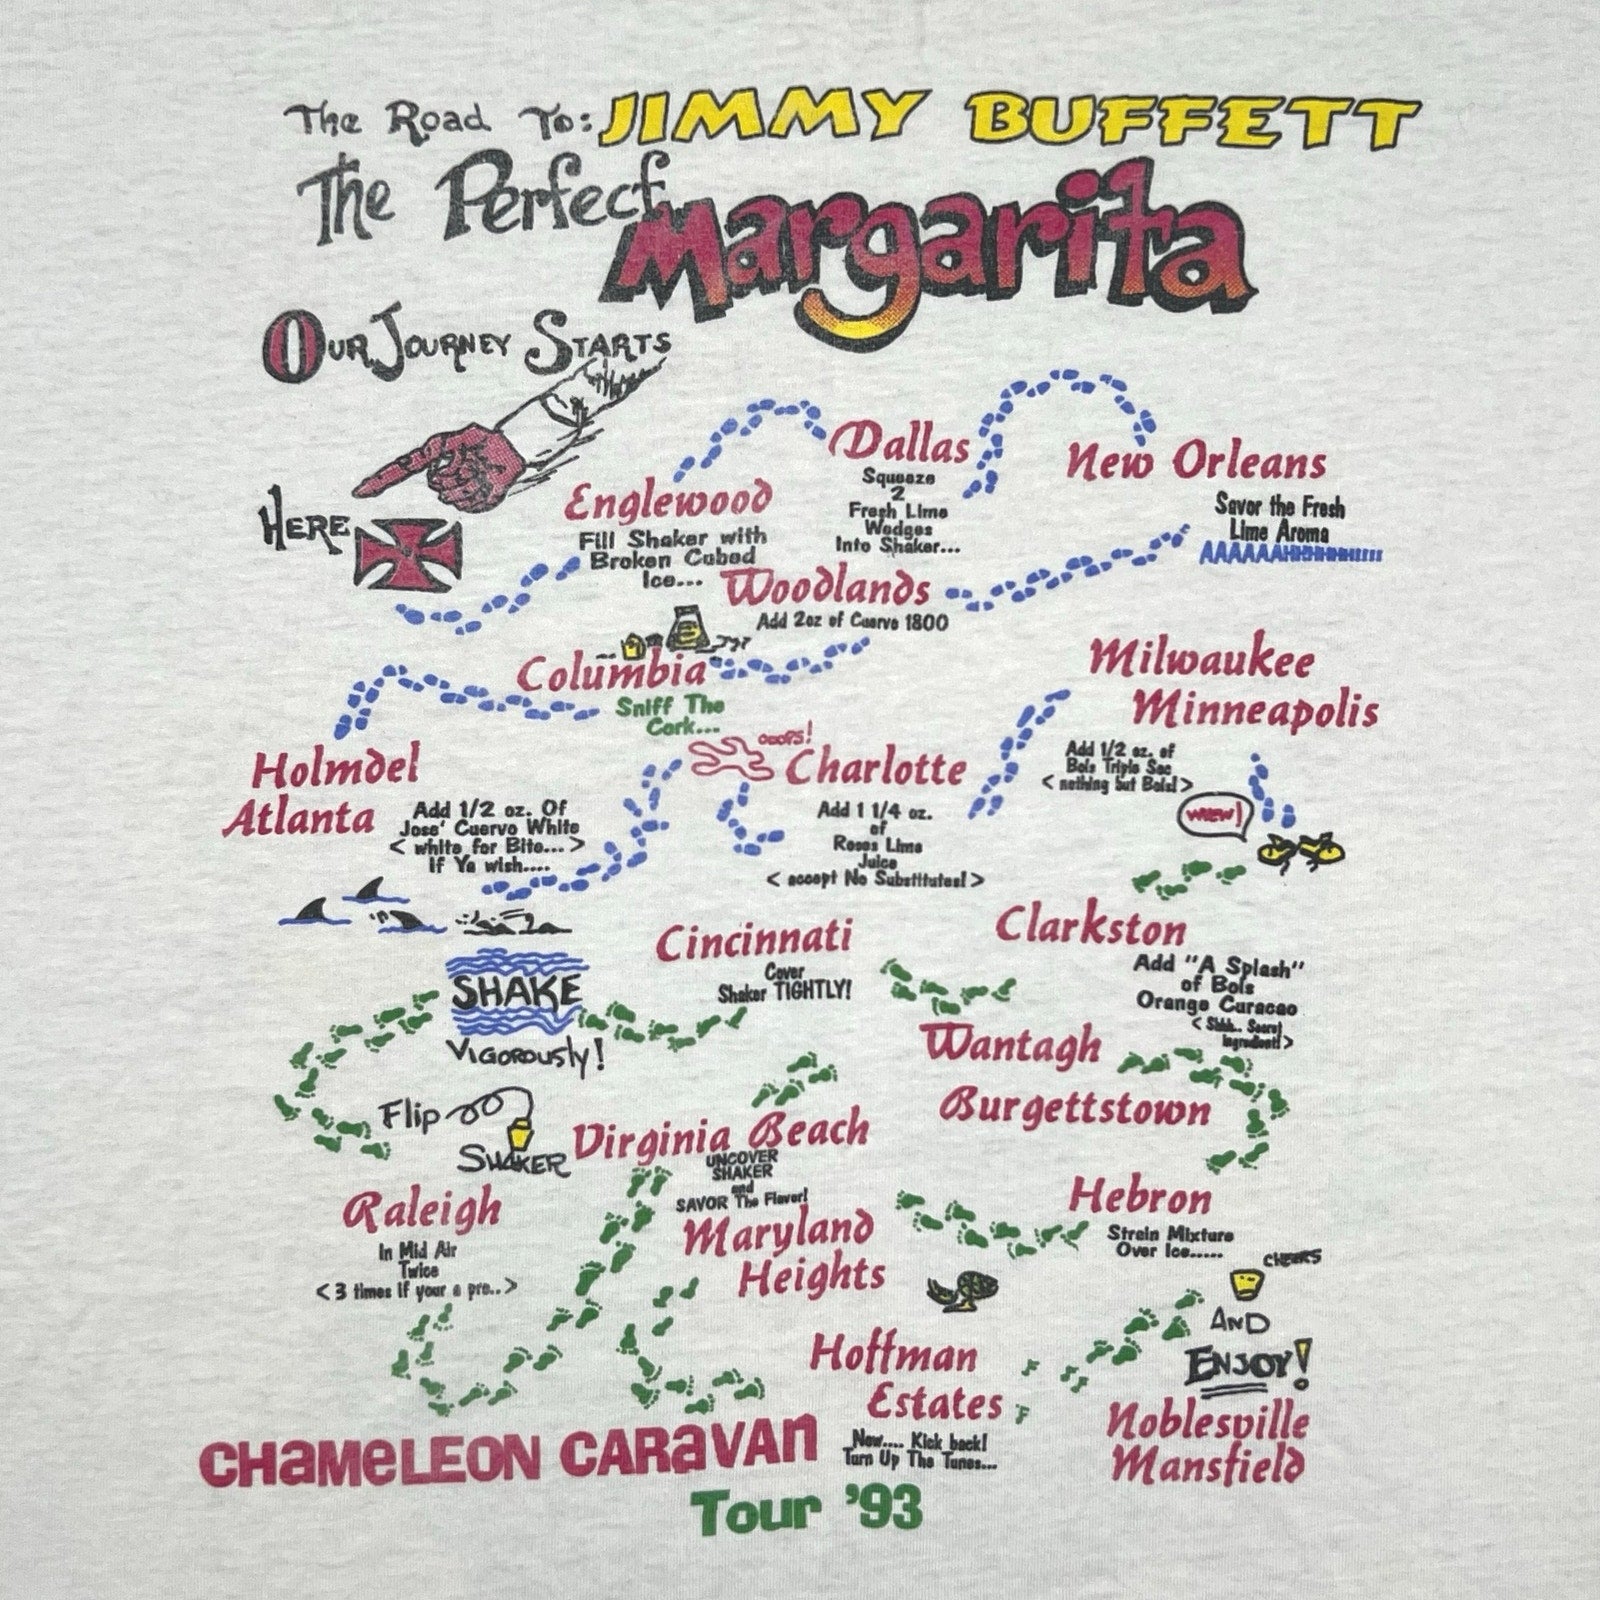 The Road To: JIMMY BUFFETT
The Perfect Margarita
Our Journey Starts
Here
Englewood
Fill Shaker with
Broken Cubed
Ice...
Dallas
Squeeze
2
Fresh Lime
Wedges
Into Shaker...
New Orleans
Savor the Fresh
Lime Aroma
Woodlands
Add 2oz of Cuervo 1800
Columbia
Sniff The
Cork...
Holmdel
Atlanta
Add 1/2 oz. Of
Jose' Cuervo White
< white for Bite... >
If Ya wish....
OOOPS!
Charlotte
Add 1 1/4 oz.
of
Roses Lime
Juice
< accept No Substitutes! >
Milwaukee
Minneapolis
Add 1/2 oz. of
Bols Triple Sec
< nothing but Bols! >
WHEW!
Clarkston
Add "A Splash"
of Bols
Orange Curacao
< Shhh.. Secret
Ingredient! >
Cincinnati
Cover
Shaker TIGHTLY!
SHAKE
Vigorously!
Flip
SHAKER
Raleigh
In Mid Air
Twice
< 3 times if your a pro.. >
Virginia Beach
UNCOVER
SHAKER
and
SAVOR The Flavor!
Wantagh
Burgettstown
Hebron
Strain Mixture
Over Ice.....
Maryland
Heights
CHEERS
AND
ENJOY!
Hoffman
Estates
Now.... Kick back!
Turn Up The Tunes...
Noblesville
Mansfield
CHAMELEON CARAVAN
Tour '93